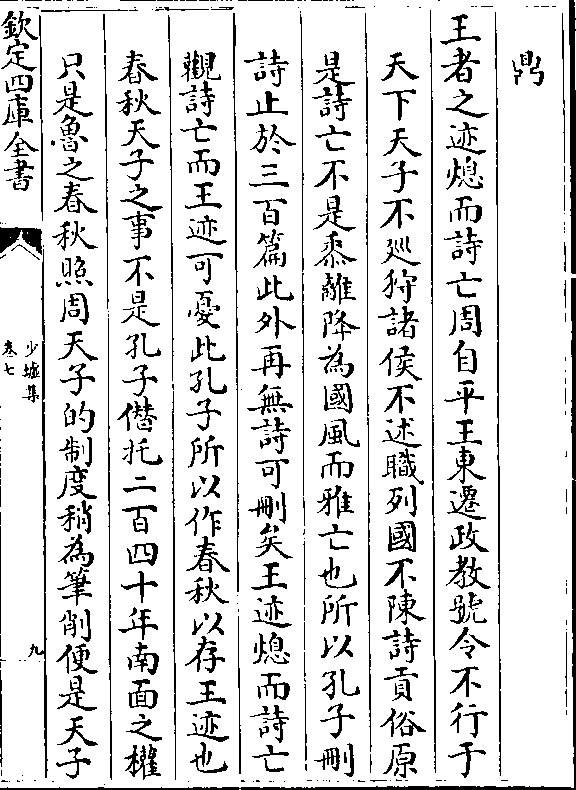 鼎
王者之迹熄而詩亡周自平王東遷政教號令不行于
天下天子不廵狩諸侯不述職列國不陳詩貢俗原
是詩亡不是黍離降為國風而雅亡也所以孔子刪
詩止於三百篇此外再無詩可刪矣王迹熄而詩亡
觀詩亡而王迹可憂此孔子所以作春秋以存王迹也
春秋天子之事不是孔子僭托二百四十年南面之權
只是魯之春秋照周天子的制度稍為筆削便是天子
欽定四庫全書
少墟集
卷七
九